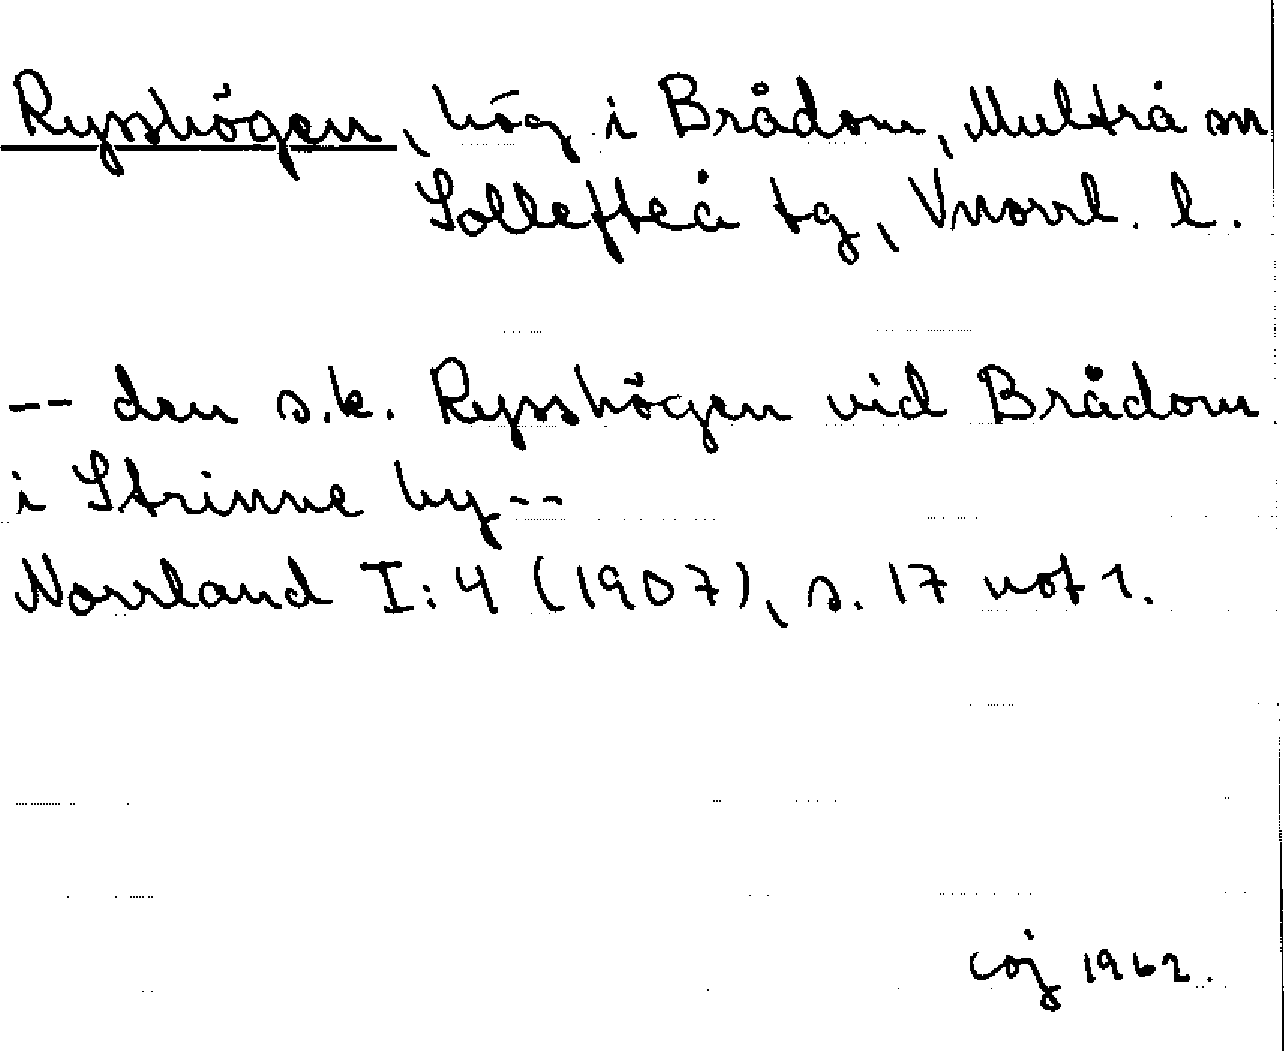 Rysshögen, hög i Brådom, Multrå sn
Sollefteå tg, Vnorrl. l.
-- den s.k. Rysshögen vid Brådom
i Strinne by --
Norrland I:4 (1907), s. 17 not 1.
coj 1962.